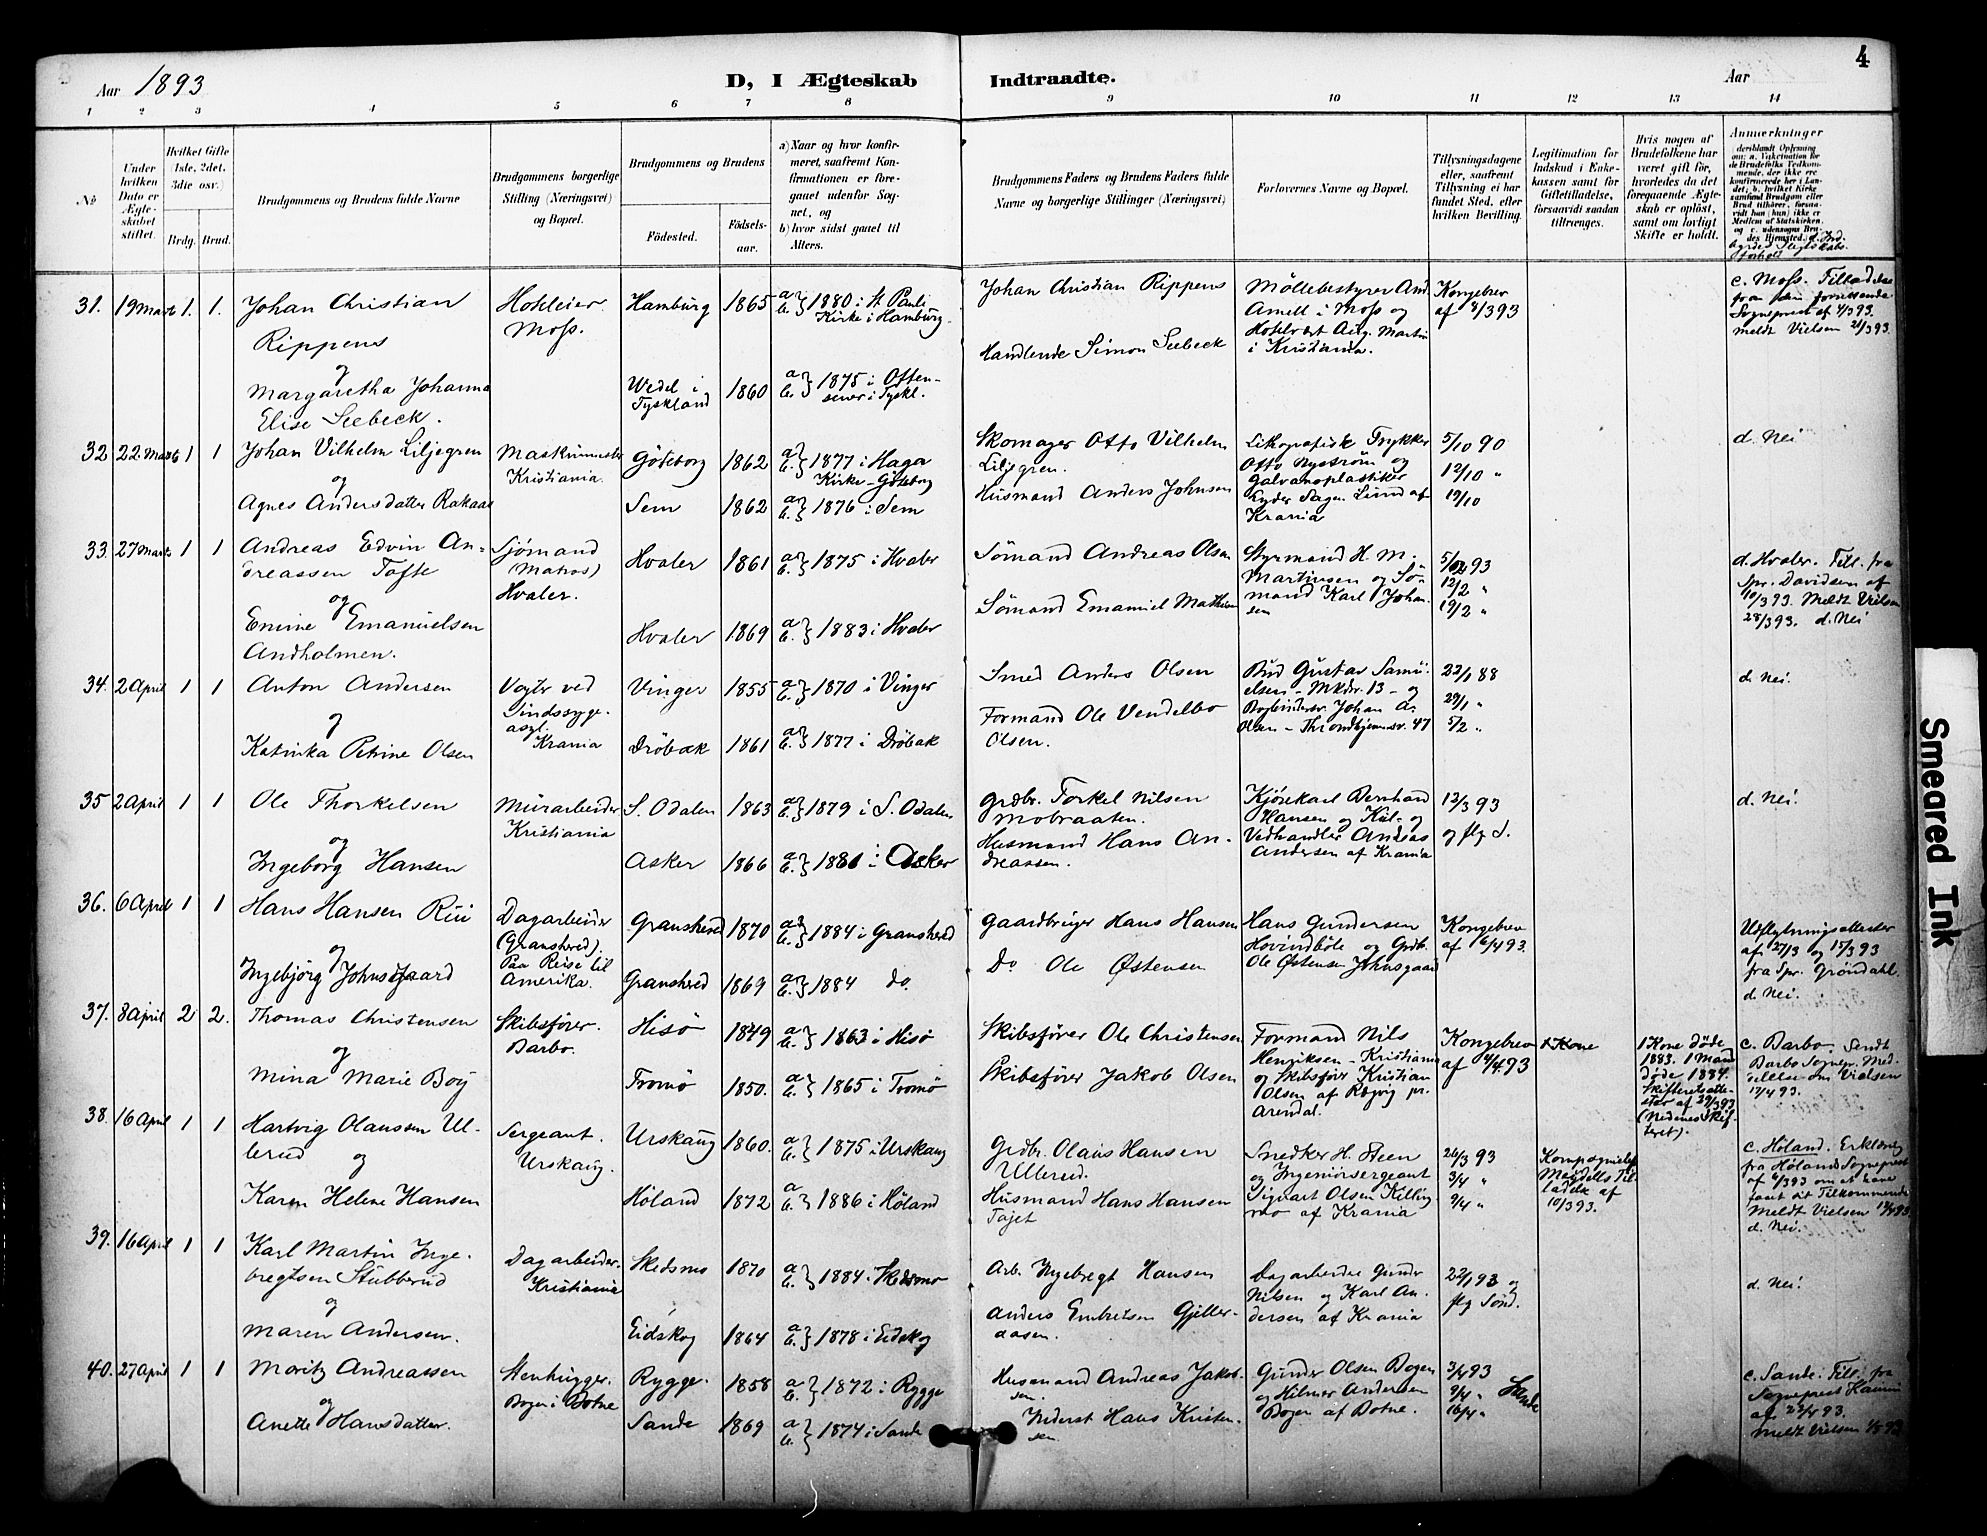 4
Aar 1893 D, I Ægteskab Indtraadte. Aar
1 2 3 4 5 6 7 8 9 10 11 12 13 14
№
Under hvilken Dato er Ægteskabet stiftet.
Hvilket Gifte (1ste, 2det, 3die osv.)
Brdg. Brud.
Brudgommens og Brudens fulde Navne
Brudgommens borgerlige Stilling (Næringsvei) og Bopæl.
Brudgommens og Brudens
Fødested. Fødselsaar.
a) Naar og hvor konfirmeret, saafremt Konfirmationen er foregaaet udenfor Sognet, og
b) hvor sidst gaaet til Alters.
Brudgommens Faders og Brudens Faders fulde Navne og borgerlige Stillinger (Næringsvei)
Forlovernes Navne og Bopæl.
Tillysningsdagene eller, saafremt Tillysning ei har fundet Sted, efter hvilken Bevilling.
Legitimation for Indskud i Enkekassen samt for Giftetilladelse, forsaavidt saadan tiltrænges.
Hvis nogen af Brudefolkene har været gift før, hvorledes da det foregaaende Ægteskab er opløst, samt om lovligt Skifte er holdt.
Anmærkninger
31. 19 Marts 1. 1. Johan Christian Rippens
og
Margaretha Johanna Elise Seebeck.
Hoteleier Moss.
Hamburg 1865 a b. } 1880 i St Pauli Kirke i Hamburg.
Wedel i Tyskland 1860 a b. } 1875 i Ottensener i Tyskl.
Johan Christian Rippens
Handlende Simon Seebeck
Möllebestyrer And Arnell i Moss og Hotelvert Aug. Martin i Kristiania.
Kongebrev af 4/3 93
c. Moss. Tilladelse fra
Sognepræst af 4/3 93.
meldt Vielsen 21/3 93.
32 22 Marts 1 1 Johan Vilhelm Liljegren
og
Agnes Andersdatter Rakaas
Maskinmester Kristiania.
Göteborg 1862 a b. } 1877 i Haga Kirke - Göteborg
Sem 1862 a b. } 1876 i Sem
Skomager Otto Vilhelm Liljegren.
Husmand Anders Johnsen
Lithografisk Trykker Otto Nyström og Galvanoplastiker
Lund af Krania
5/10 90
12/10 "
19/10
d. Nei
33. 27 Marts 1 1 Andreas Edvin Andreassen Tofte
og
Emine Emanuelsen Andholmen.
Sjömand (Matros) Hvaler.
Hvaler 1861 a b. } 1875 i Hvaler
Hvaler 1869 a b. } 1883 i Hvaler
Sömand Andreas Olsen
Sömand Emanuel Mathisen
Styrmand H. M. Martinsen og Sömand Karl Johansen
5/2 93
12/2 "
19/2 "
d. Hvaler. Till. fra
Spr. Davidsen af
10/3 93. Meldt Vielsen
28/3 93. d. Nei
34. 2 April 1 1 Anton Andersen
og
Katinka Petrine Olsen
Vogter ved Sindssygeasyl. Krania
Vinger 1855 a b. } 1870 i Vinger
Dröbak 1861 a b. } 1877 i Dröbak
Smed Anders Olsen
Formand Ole Vendelbo Olsen.
Bud Gustav Samuelsen - Mkdsv. 13 - og
Bogbindersv. Johan A. Olsen - Throndhjemsv. 47
22/1 88
29/1 "
5/2 "
d. Nei.
35 2 April 1 1 Ole Thorkelsen
og
Ingeborg Hansen
Murarbeider Kristiania
S. Odalen 1863 a b. } 1879 i S. Odalen
Asker 1866 a b. } 1881 i Asker
Grdbr. Torkel Nilsen Mobraaten.
Husmand Hans Andreassen.
Kjörekarl Bernhard Hansen og Kul- og Vedhandler Andreas Andersen af Krania
12/3 93 og flg S.
d. Nei.
36. 6 April 1 1 Hans Hansen Rui
og
Ingebjörg Johnsgaard
Dagarbeider (Gransherred). Paa Reise til Amerika.
Gransherred 1870 a b. } 1884 i Gransherred
Gransherred 1869 a b. } 1884 do.
Gaardbruger Hans Hansen
Do Ole Østensen
Hans Gundersen Hovindböle og Grdb. Ole Østensen Johnsgaard
Kongebrev af 6/4 93.
Udflytningsattester
af 27/3 og 15/3 93
fra Spr. Gröndahl.
d. Nei.
37. 8 April 2 2. Thomas Christensen
og
Mina Marie Boy
Skibsförer. Barbo.
Hisö 1849 a b. } 1863 i Hisö
Tromö 1850. a b. } 1865 i Tromö
Skibsförer Ole Christensen
Skibsförer Jakob Olsen
Formand Nils Henriksen - Kristiania og Skibsförer Kristian Olsen af Rægvig pr. Arendal.
Kongebrev af 4/4 93
1 Kone
1 Kone døde 1883. 1 Mand døde 1884. Skifteretsattester af 29/3 93 (Nedenes Skifteret).
c. Barbo. Sendt
Barbo Sognepr. Meddelelse om Vielsen
17/4 93.
38. 16 April 1 1 Hartvig Olaussen Ullerud
og
Karen Helene Hansen
Sergeant. Urskaug.
Urskaug 1860. a b. } 1875 i Urskaug
Höland 1872 a b. } 1886 i Höland
Grdbr. Olaus Hansen Ullerud.
Husmand Hans Hansen Tajet
Snedker H. Steen og Ingeniörsergeant Sigvart Olsen Killingmo af Krania
26/3 93
3/4 "
9/4 "
Kompagnichef Mogdells Tilladelse af 10/3 93.
c. Höland. Erklæring
fra Hölands Sognepræst
af 6/3 93 om at have
faaet sit Tilkommende
Meldt Vielsen 17/4 93.
d. Nei.
39. 16 April 1 1 Karl Martin Ingebregtsen Stubberud
og
Maren Andersen.
Dagarbeider. Kristiania
Skedsmo 1870 a b. } 1884 i Skedsmo
Eidskog 1864 a b. } 1878 i Eidskog
Arb. Ingebregt Hansen
Anders Embretsen Gjelleraasen.
Dagarbeider Gunder Nilsen og Karl Andersen af Krania
22/1 93 og flg Sönd.
d. Nei.
40. 27 April 1 1 Moritz Andreassen
og
Anette Hansdatter.
Stenhugger. Bogen i Botne
Rygge. 1858 a b. } 1872 i Rygge
Sande 1869 a b. } 1874 i Sande
Husmand Andreas Jakobsen.
Inderst Hans Kristensen.
Gunder Olsen Bogen og Hilmer Andersen Bogen af Botne.
3/4 93
9/4 "
16/4 "
Sande
c. Sande. Till. fra
Sognepræst
af 22/4 93.
Meldt Vielsen 1/5 93
Smeared Ink